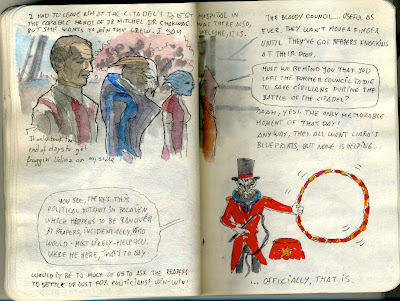 I HAD TO LEAVE ASH AT THE CITADEL'S BIGGEST HOSPITAL IN
THE CAPABLE HANDS OF DR MITCHEL. DR CHAKWAS WAS THERE ALSO,
BUT SHE WANTS TO JOIN THY CREW. I SAY WELCOME, IT IS.
It only took the
end of days to get
fraggin' Udina on my side
YOU SEE, THERE'S THIS
POLITICAL IN PALAVEN
WHICH HAPPENS TO BE RAN OVER
BY REAPERS, INCIDENTALLY, AND
WOULD - MOST LIKELY - HELP YOU
WERE HE HERE, THAT'S TO SAY
WOULD IT BE TO MUCH OF US TO ASK THE REAPERS
TO SETTLE UP JUST FOR POLITICIANS? WIN-WIN!
THE BLOODY COUNCIL... USEFUL AS
EVER. THEY WON'T MOVE A FINGER
UNTIL THEY'VE GOT REAPERS KNOCKING
AT THEIR DOOR.
MUST WE REMIND YOU THAT YOU
LEFT THE FORMER COUNCIL TO DIE
TO SAVE CIVILIANS DURING THE
BATTLE OF THE CITADEL?
AAAH, YES! THE ONLY MEMORABLE
MOMENT OF THAT DAY!
ANYWAY, THEY ALL WANT LIARA'S
BLUEPRINTS, BUT NONE IS HELPING...
... OFFICIALLY, THAT IS.